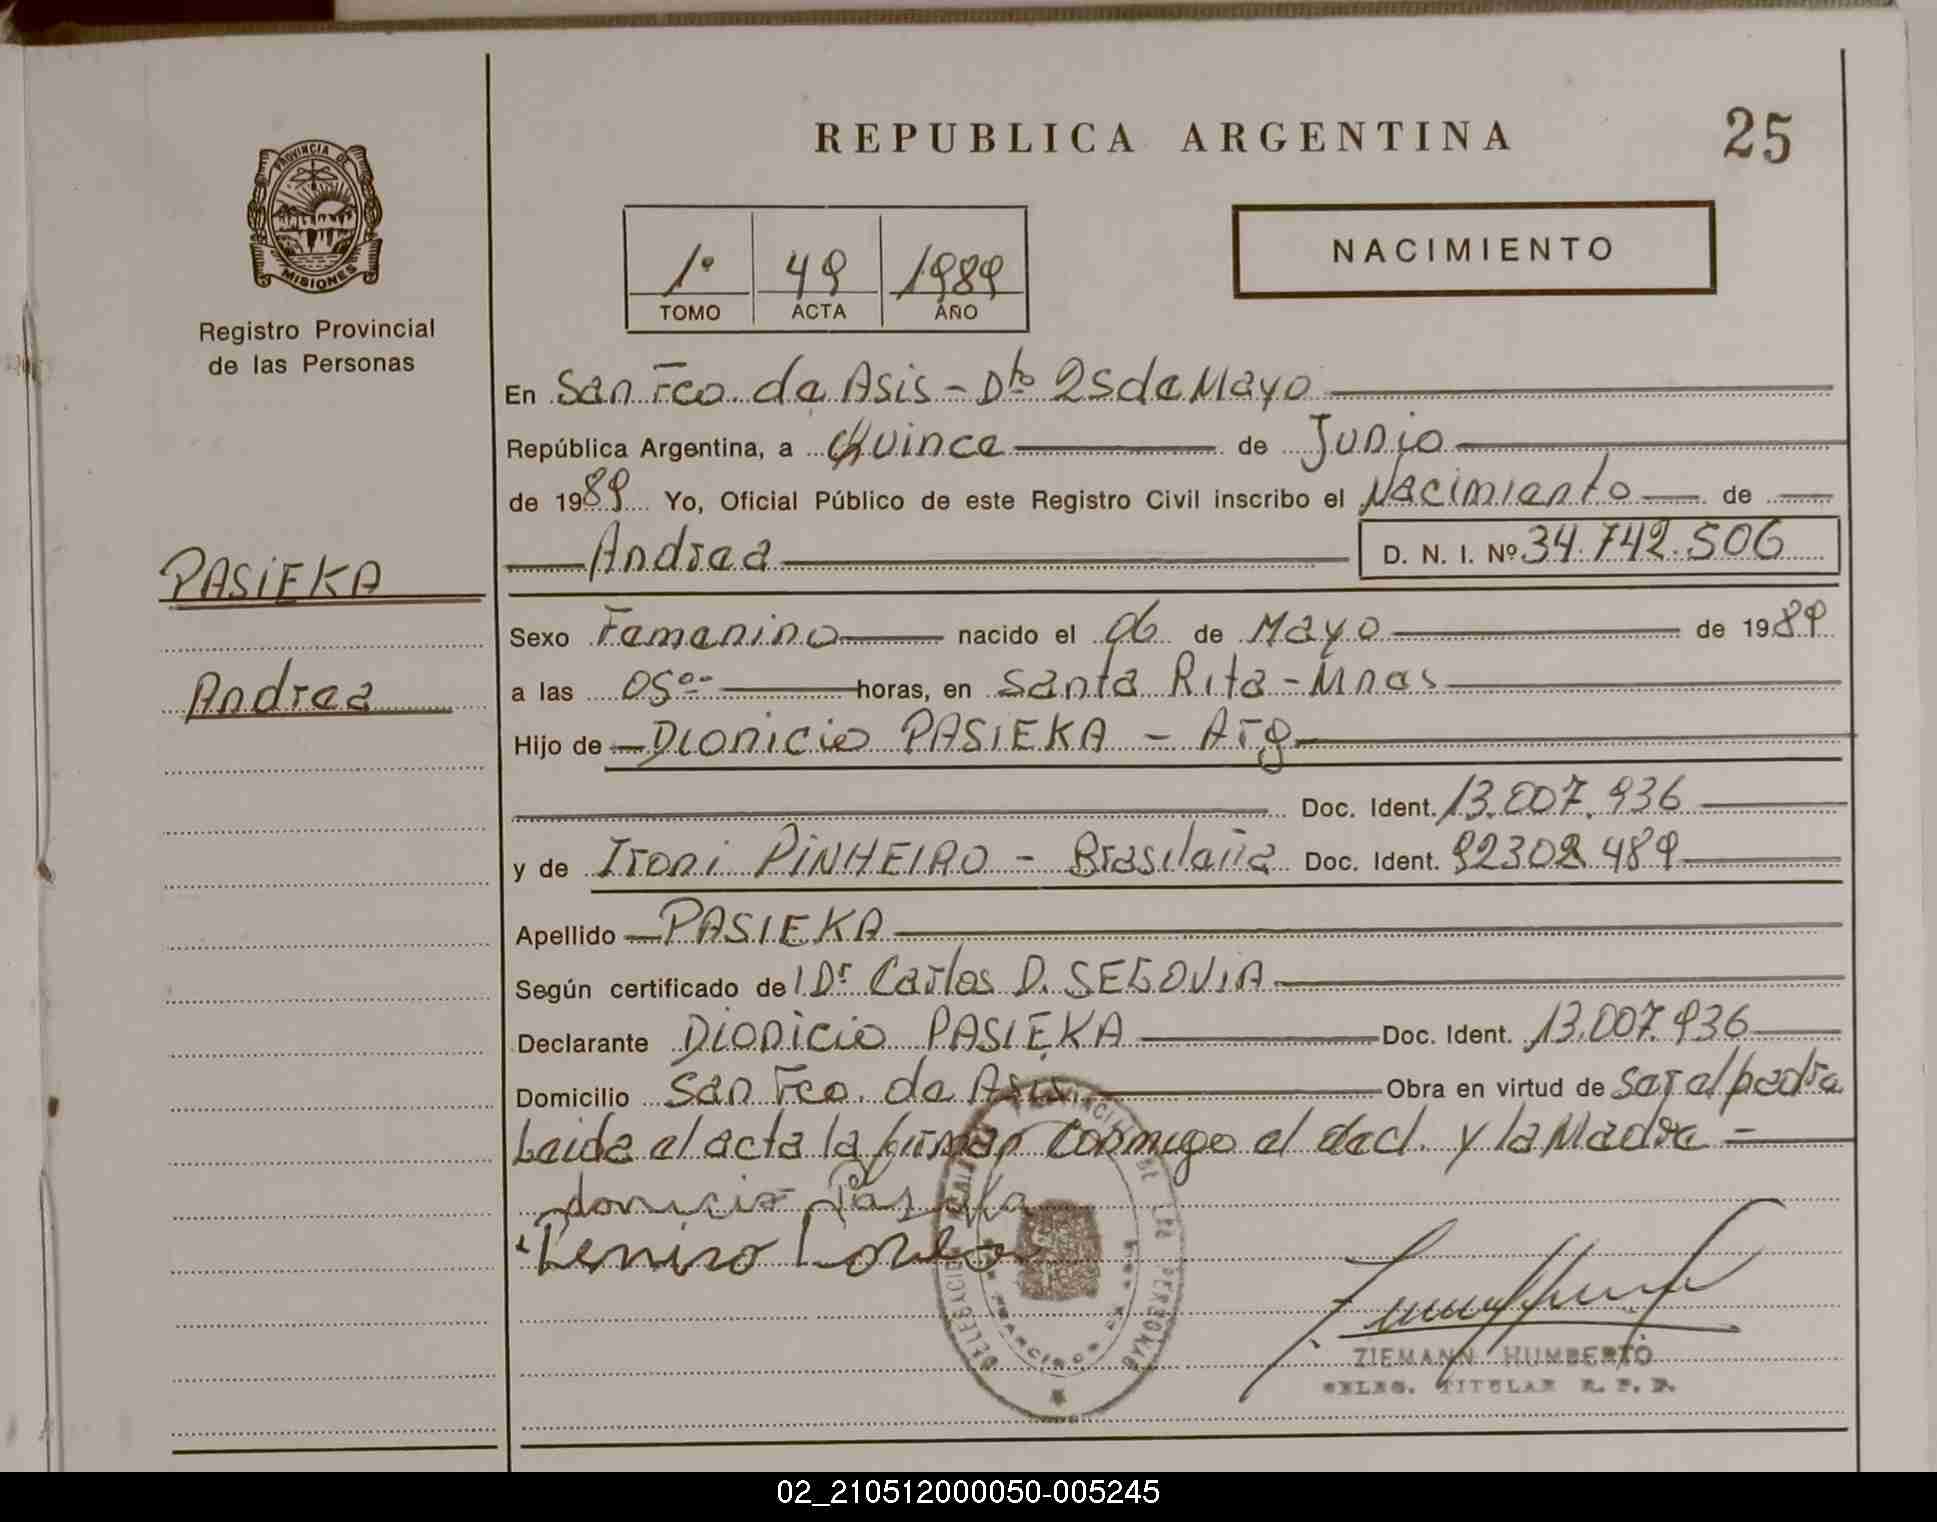 REPUBLICA ARGENTINA
25
PROVINCIA DE
MISIONES
Registro Provincial
de las Personas
1º 49 1989
TOMO ACTA AÑO
NACIMIENTO
En San Fco. de Asis - Dto 25 de Mayo
República Argentina, a Quince de Junio
de 1989 Yo, Oficial Público de este Registro Civil inscribo el Nacimiento de
Andrea D. N. I. Nº 34.742.506
PASIEKA
Andrea
Sexo Femenino nacido el 06 de Mayo de 1989
a las 05oo horas, en Santa Rita - Mnes
Hijo de Dionicio PASIEKA - Arg
Doc. Ident. 13.007.936
y de Ironi PINHEIRO - Brasileña Doc. Ident. 92302489
Apellido PASIEKA
Según certificado de Dr Carlos D. SEGOVIA
Declarante Dionicio PASIEKA Doc. Ident. 13.007.936
Domicilio San Fco. de Asis Obra en virtud de ser el padre
Leida el acta la firman conmigo el decl. y la Madre -
ZIEMANN HUMBERTO
DELEG. TITULAR R. P. P.
02_210512000050-005245